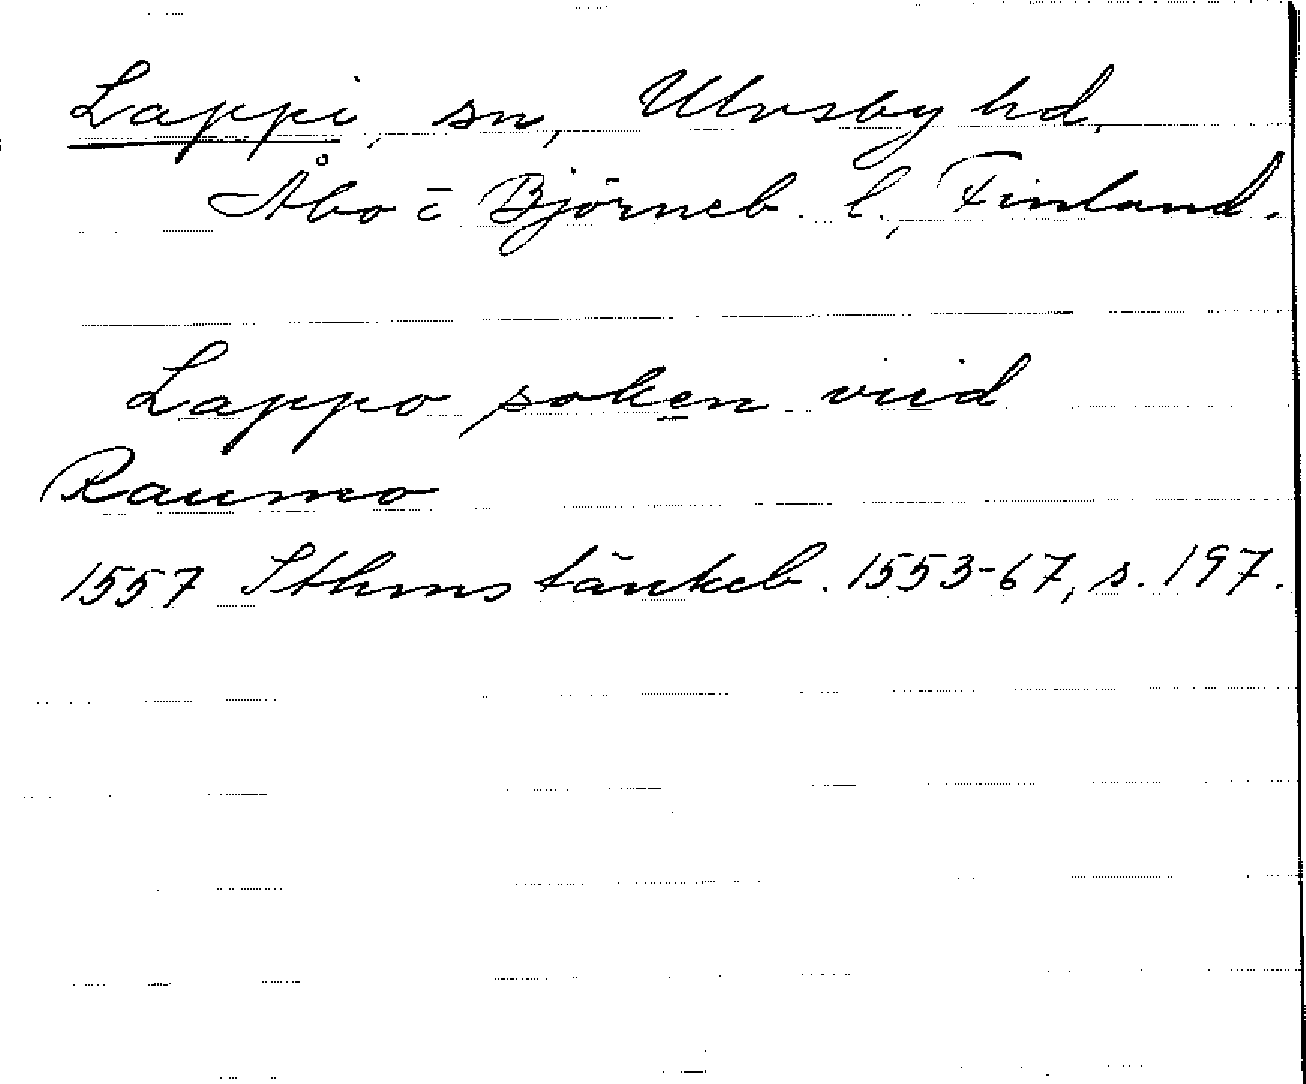 Lappi, sn, Ulvsby hd,
Åbo o Björneb. l., Finland.
Lappo soken viid
Raumo
1557 Sthms tänkeb. 1553-67, s. 197.